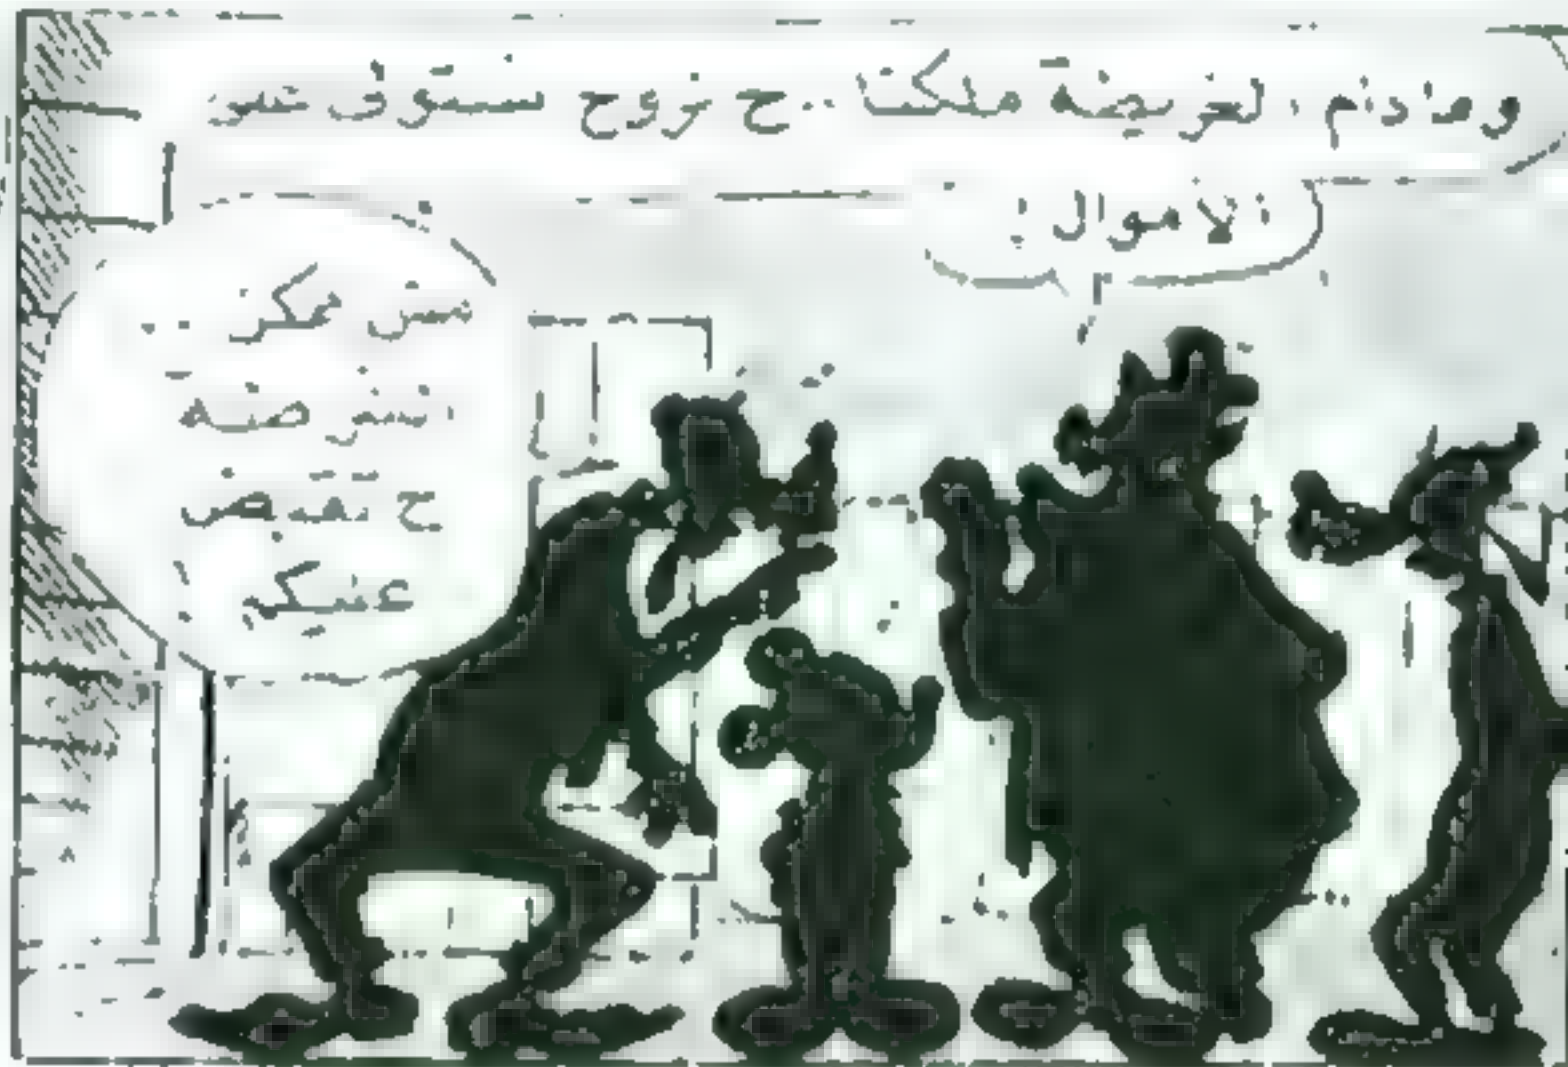 ومادام الخريطة ملكنا .. ح نروح نستوفى شوية
الأموال !
مش ممكن ..
الشرطة
ح تقبض
عليكم !